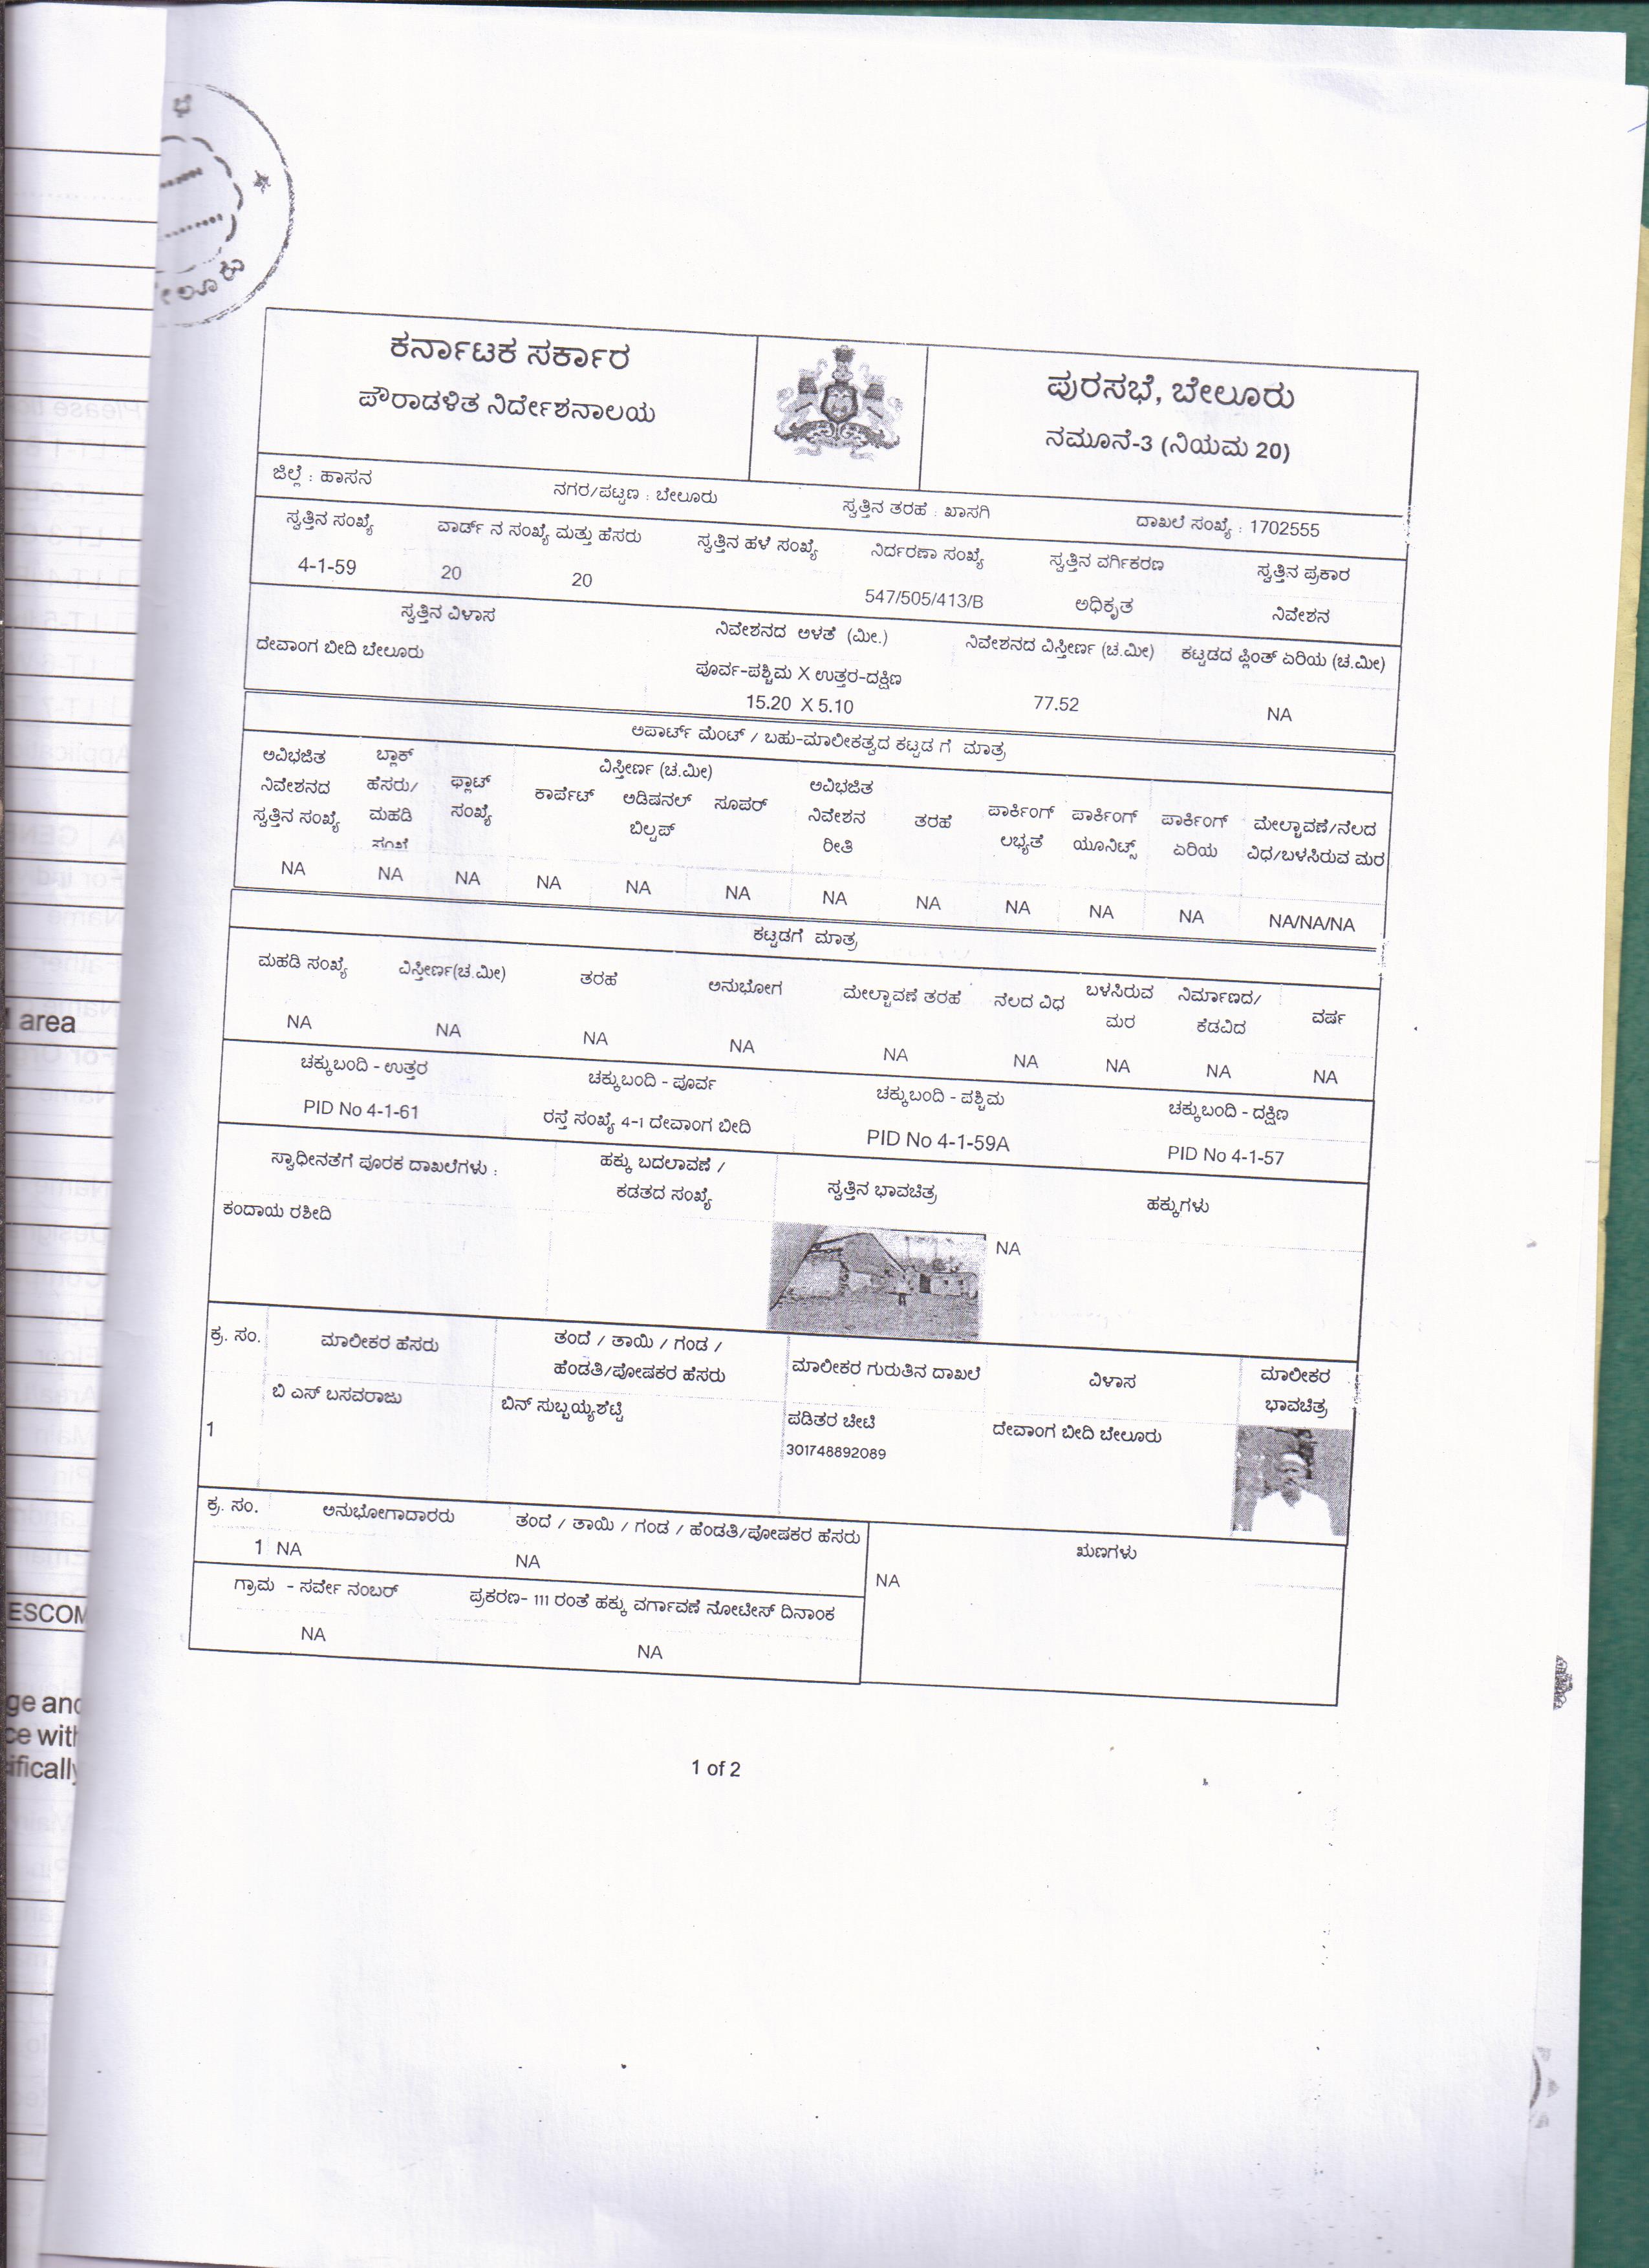 ಕರ್ನಾಟಕ ಸರ್ಕಾರ
ಪೌರಾಡಳಿತ ನಿರ್ದೇಶನಾಲಯ
ಪುರಸಭೆ, ಬೇಲೂರು
ನಮೂನೆ-3 (ನಿಯಮ 20)
ಜಿಲ್ಲೆ : ಹಾಸನ ನಗರ/ಪಟ್ಟಣ : ಬೇಲೂರು ಸ್ವತ್ತಿನ ತರಹೆ : ಖಾಸಗಿ ದಾಖಲೆ ಸಂಖ್ಯೆ : 1702555
ಸ್ವತ್ತಿನ ಸಂಖ್ಯೆ ವಾರ್ಡ್ ನ ಸಂಖ್ಯೆ ಮತ್ತು ಹೆಸರು ಸ್ವತ್ತಿನ ಹಳೆ ಸಂಖ್ಯೆ ನಿರ್ದರಣಾ ಸಂಖ್ಯೆ ಸ್ವತ್ತಿನ ವರ್ಗಿಕರಣ ಸ್ವತ್ತಿನ ಪ್ರಕಾರ
4-1-59 20 20 547/505/413/B ಅಧಿಕೃತ ನಿವೇಶನ
ಸ್ವತ್ತಿನ ವಿಳಾಸ ನಿವೇಶನದ ಅಳತೆ (ಮೀ.) ನಿವೇಶನದ ವಿಸ್ತೀರ್ಣ (ಚ.ಮೀ) ಕಟ್ಟಡದ ಪ್ಲಿಂತ್ ಏರಿಯ (ಚ.ಮೀ)
ದೇವಾಂಗ ಬೀದಿ ಬೇಲೂರು ಪೂರ್ವ-ಪಶ್ಚಿಮ X ಉತ್ತರ-ದಕ್ಷಿಣ
15.20 X 5.10 77.52 NA
ಅಪಾರ್ಟ್ ಮೆಂಟ್ / ಬಹು-ಮಾಲೀಕತ್ವದ ಕಟ್ಟಡ ಗೆ ಮಾತ್ರ
ಅವಿಭಜಿತ ಬ್ಲಾಕ್ ವಿಸ್ತೀರ್ಣ (ಚ.ಮೀ) ಅವಿಭಜಿತ
ನಿವೇಶನದ ಹೆಸರು/ ಫ್ಲಾಟ್ ಕಾರ್ಪೆಟ್ ಅಡಿಷನಲ್ ಸೂಪರ್ ನಿವೇಶನ ತರಹೆ ಪಾರ್ಕಿಂಗ್ ಪಾರ್ಕಿಂಗ್ ಪಾರ್ಕಿಂಗ್ ಮೇಲ್ಚಾವಣೆ/ನೆಲದ
ಸ್ವತ್ತಿನ ಸಂಖ್ಯೆ ಮಹಡಿ ಸಂಖ್ಯೆ ಬಿಲ್ಟಪ್ ರೀತಿ ಲಭ್ಯತೆ ಯೂನಿಟ್ಸ್ ಏರಿಯ ವಿಧ/ಬಳಸಿರುವ ಮರ
NA NA NA NA NA NA NA NA NA NA NA NA/NA/NA
ಕಟ್ಟಡಗೆ ಮಾತ್ರ
ಮಹಡಿ ಸಂಖ್ಯೆ ವಿಸ್ತೀರ್ಣ(ಚ.ಮೀ) ತರಹೆ ಅನುಭೋಗ ಮೇಲ್ಚಾವಣೆ ತರಹೆ ನೆಲದ ವಿಧ ಬಳಸಿರುವ ನಿರ್ಮಾಣದ/ ವರ್ಷ
ಮರ ಕೆಡವಿದ
NA NA NA NA NA NA NA NA NA
ಚಕ್ಕುಬಂದಿ - ಉತ್ತರ ಚಕ್ಕುಬಂದಿ - ಪೂರ್ವ ಚಕ್ಕುಬಂದಿ - ಪಶ್ಚಿಮ ಚಕ್ಕುಬಂದಿ - ದಕ್ಷಿಣ
PID No 4-1-61 ರಸ್ತೆ ಸಂಖ್ಯೆ 4-1 ದೇವಾಂಗ ಬೀದಿ PID No 4-1-59A PID No 4-1-57
ಸ್ವಾಧೀನತೆಗೆ ಪೂರಕ ದಾಖಲೆಗಳು : ಹಕ್ಕು ಬದಲಾವಣೆ / ಸ್ವತ್ತಿನ ಭಾವಚಿತ್ರ ಹಕ್ಕುಗಳು
ಕಡತದ ಸಂಖ್ಯೆ
ಕಂದಾಯ ರಶೀದಿ NA
ಕ್ರ. ಸಂ. ಮಾಲೀಕರ ಹೆಸರು ತಂದೆ / ತಾಯಿ / ಗಂಡ / ಮಾಲೀಕರ ಗುರುತಿನ ದಾಖಲೆ ವಿಳಾಸ ಮಾಲೀಕರ
ಹೆಂಡತಿ/ಪೋಷಕರ ಹೆಸರು ಭಾವಚಿತ್ರ
1 ಬಿ ಎಸ್ ಬಸವರಾಜು ಬಿನ್ ಸುಬ್ಬಯ್ಯಶೆಟ್ಟಿ ಪಡಿತರ ಚೀಟಿ ದೇವಾಂಗ ಬೀದಿ ಬೇಲೂರು
301748892089
ಕ್ರ. ಸಂ. ಅನುಭೋಗಾದಾರರು ತಂದೆ / ತಾಯಿ / ಗಂಡ / ಹೆಂಡತಿ/ಪೋಷಕರ ಹೆಸರು ಋಣಗಳು
1 NA NA NA
ಗ್ರಾಮ - ಸರ್ವೇ ನಂಬರ್ ಪ್ರಕರಣ- 111 ರಂತೆ ಹಕ್ಕು ವರ್ಗಾವಣೆ ನೋಟೀಸ್ ದಿನಾಂಕ
NA NA
1 of 2
area
ESCOM
ge and
ce with
ifically